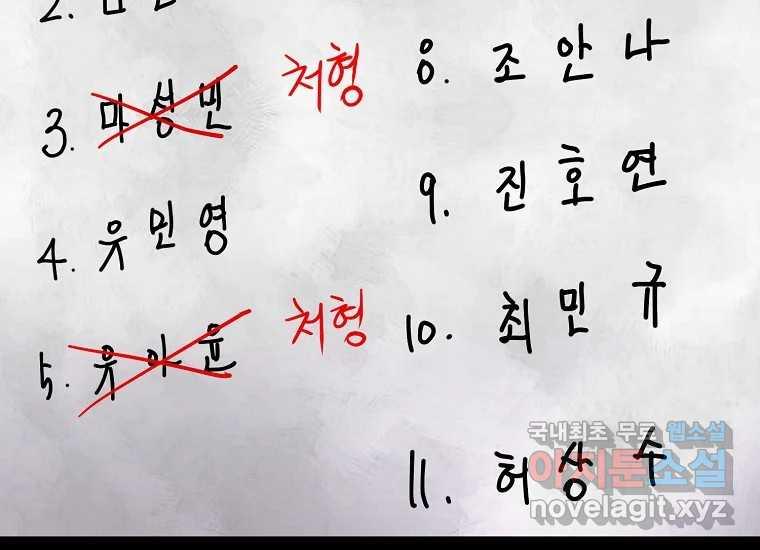 3. 마성민 처형
4. 유민영
5. 유아윤 처형
8. 조안나
9. 진호연
10. 최민규
11. 허상수
국내최초 무료 웹소설
아지툰소설
novelagit.xyz